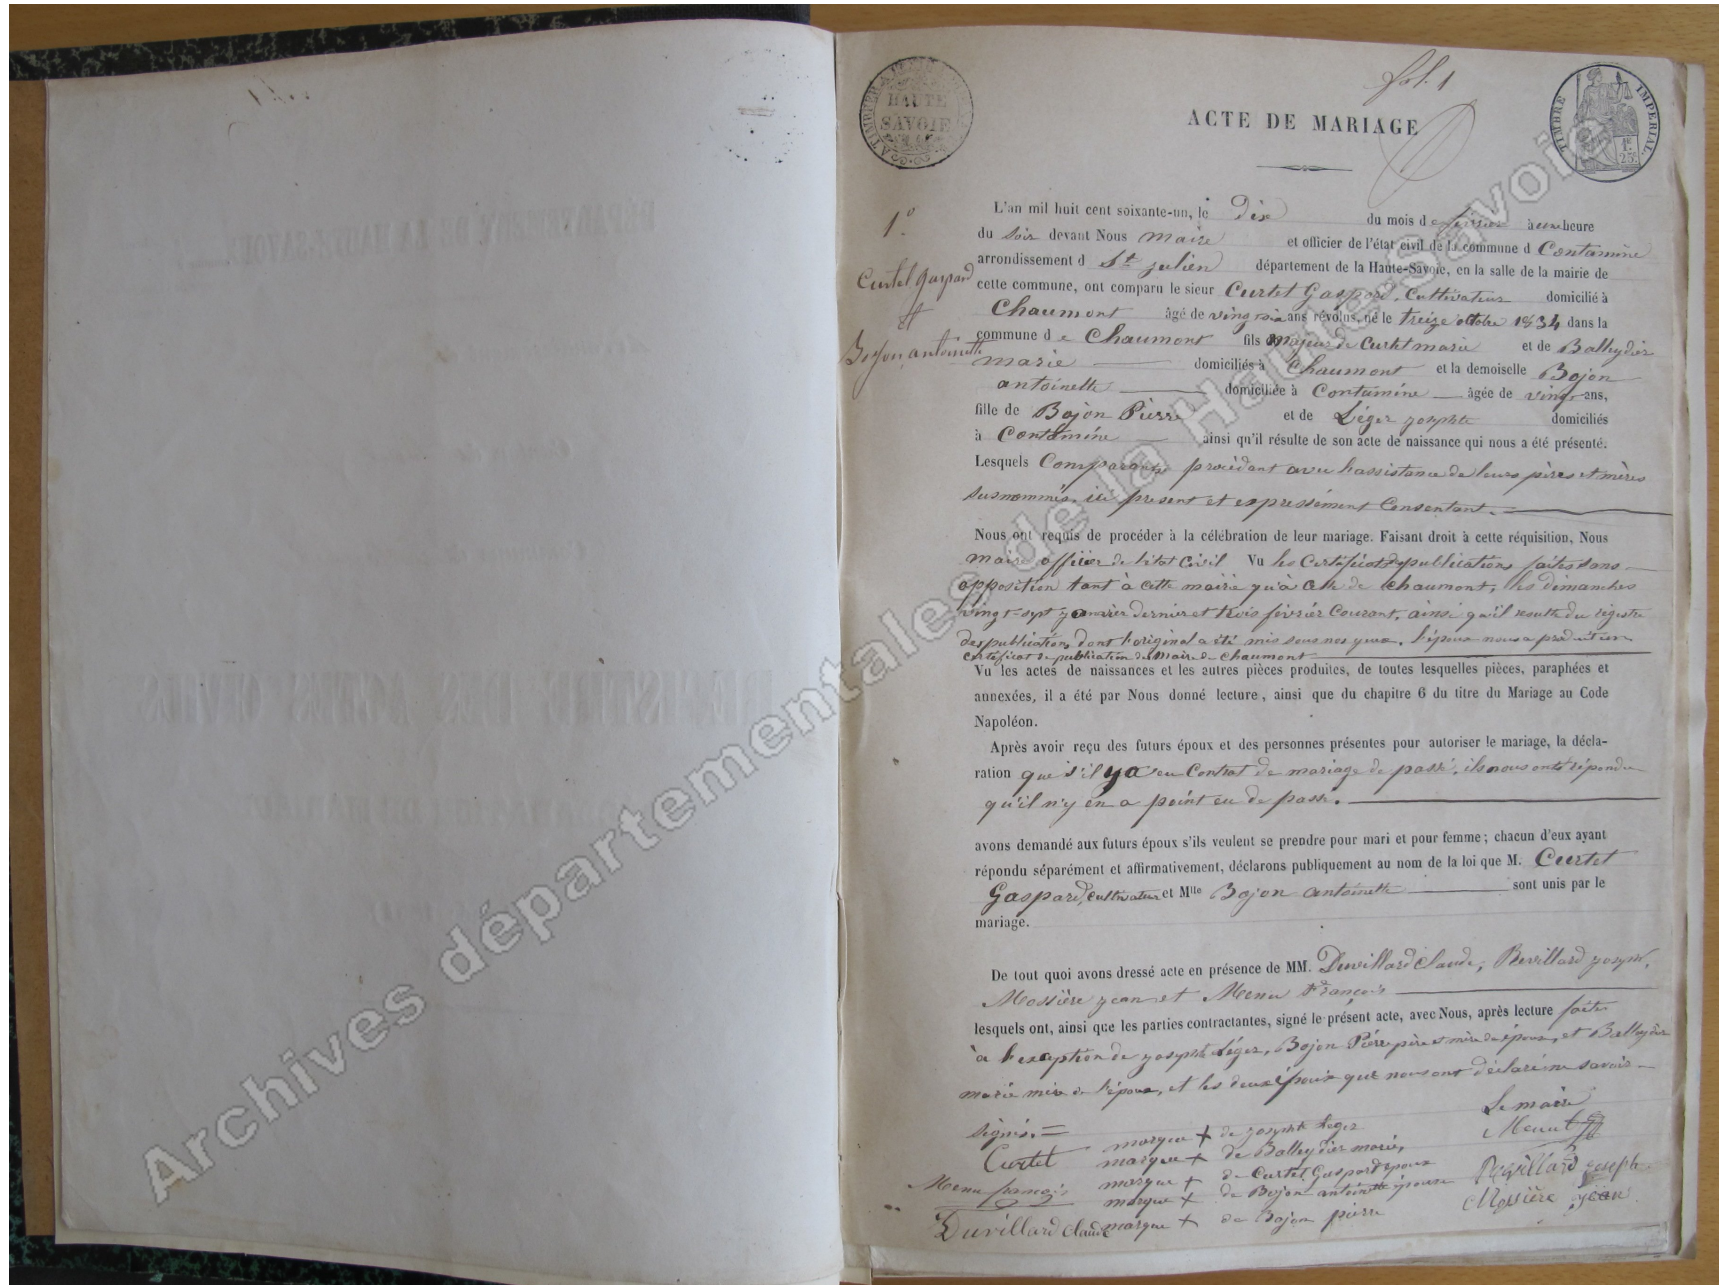 fol. 1
ATIMBRE
HAUTE
SAVOIE
ACTE DE MARIAGE
TIMBRE IMPERIAL
1F.
25c.
1º
Curtet Gaspard
et
Bojon, antoinette
L'an mil huit cent soixante-un, le Dix du mois de février à une heure
du soir devant Nous maire et officier de l'état civil de la commune d Contamine
arrondissement d St julien département de la Haute-Savoie, en la salle de la mairie de
cette commune, ont comparu le sieur Curtet Gaspard, Cultivateur domicilié à
Chaumont âgé de vingt six ans révolus, né le treize octobre 1834 dans la
commune d e Chaumont fils majeur de Curtet marie et de Balleydier
marie domiciliés à Chaumont et la demoiselle Bojon
antoinette domiciliée à Contamine âgée de vingt ans,
fille de Bojon Pierre et de Léger josephte domiciliés
à Contamine ainsi qu'il résulte de son acte de naissance qui nous a été présenté.
Lesquels Comparants procédant avec l'assistance de leurs pères et mères
susnommés, ici present et expressément Consentant.
Nous ont requis de procéder à la célébration de leur mariage. Faisant droit à cette réquisition, Nous
maire officier de l'état Civil Vu les Certificats de publications faites sans
opposition tant à cette mairie qu'à celle de Chaumont, les dimanches
vingt-sept janvier dernier et trois février Courant, ainsi qu'il resulte du registre
des publications dont l'original a été mis sous nos yeux. l'époux nous a produit un
certificat de publication du Maire de Chaumont
Vu les actes de naissances et les autres pièces produites, de toutes lesquelles pièces, paraphées et
annexées, il a été par Nous donné lecture, ainsi que du chapitre 6 du titre du Mariage au Code
Napoléon.
Après avoir reçu des futurs époux et des personnes présentes pour autoriser le mariage, la décla-
ration que s'il y a eu Contrat de mariage de passé, ils nous ont répondu
qu'il n'y en a point eu de passé.
avons demandé aux futurs époux s'ils veulent se prendre pour mari et pour femme ; chacun d'eux ayant
répondu séparément et affirmativement, déclarons publiquement au nom de la loi que M. Curtet
Gaspard, Cultivateur et Mlle Bojon antoinette sont unis par le
mariage.
De tout quoi avons dressé acte en présence de MM. Duvillard Claude, Revillard joseph,
Mossière jean et Menu François
lesquels ont, ainsi que les parties contractantes, signé le présent acte, avec Nous, après lecture faite
à l'exception de josephte Léger, Bojon Pierre père et mère de épouse, et Balleydier
marie mère de l'époux, et les deux époux qui nous ont déclaré ne savoir
signer.=
Le maire
Menu
Curtet marque + de josephte Léger
marque + de Balleydier marie,
Menu françois marque + de Curtet Gaspard époux
marque + de Bojon antoinette épouse
Duvillard Claude marque + de Bojon pierre
Revillard joseph
Mossière jean
Archives départementales de la Haute-Savoie